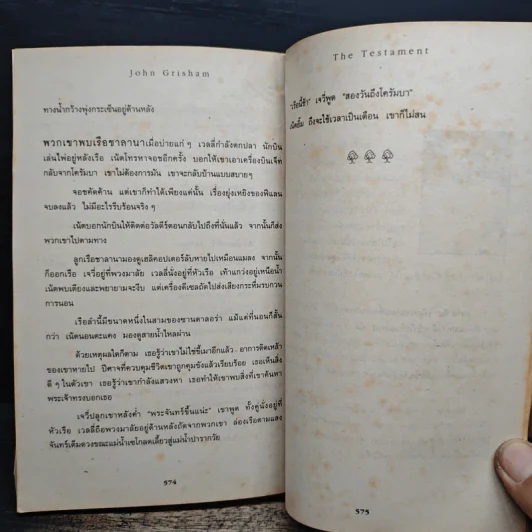 John Grisham
ทางน้ำกว้างพุ่งกระเซ็นอยู่ด้านหลัง
พวกเขาพบเรือซาลานาเมื่อบ่ายแก่ ๆ เวลลี่กำลังตกปลา นักบิน
เล่นไพ่อยู่หลังเรือ เน้ตโทรหาจอชอีกครั้ง บอกให้เขาเอาเครื่องบินเจ็ท
กลับจากโครัมบา เขาไม่ต้องการมัน เขาจะกลับบ้านแบบสบายๆ
จอชคัดค้าน แต่เขาก็ทำได้เพียงแค่นั้น เรื่องยุ่งเหยิงของฟีแลน
จบลงแล้ว ไม่มีอะไรรีบร้อนจริง ๆ
เน้ตบอกนักบินให้ติดต่อวัลดีร์ตอนกลับไปถึงที่นั่นแล้ว จากนั้นก็ส่ง
พวกเขาไปตามทาง
ลูกเรือซาลานามองดูเฮลิคอปเตอร์ลับหายไปเหมือนแมลง จากนั้น
ก็ออกเรือ เจวี่อยู่ที่พวงมาลัย เวลลี่นั่งอยู่ที่หัวเรือ เท้าแกว่งอยู่เหนือน้ำ
เน้ตพบเตียงและพยายามจะงีบ แต่เครื่องดีเซลถัดไปส่งเสียงกระหึ่มรบกวน
การนอน
เรือลำนี้มีขนาดหนึ่งในสามของซานตาลอร่า แม้แต่ที่นอนก็สั้น
กว่า เน้ตนอนตะแคง มองดูสายน้ำไหลผ่าน
ด้วยเหตุผลใดก็ตาม เธอรู้ว่าเขาไม่ใช่ขี้เมาอีกแล้ว อาการติดเหล้า
ของเขาหายไป ปีศาจที่ควบคุมชีวิตเขาถูกคุมขังแล้วเรียบร้อย เธอเห็นสิ่ง
ดี ๆ ในตัวเขา เธอรู้ว่าเขากำลังแสวงหา เธอทำให้เขาพบสิ่งที่เขาค้นหา
พระเจ้าทรงบอกเธอ
เจวี่ปลุกเขาหลังค่ำ “พระจันทร์ขึ้นแน่ะ” เขาพูด ทั้งคู่นั่งอยู่ที่
หัวเรือ เวลลี่ถือพวงมาลัยอยู่ด้านหลังถัดจากพวกเขา ล่องเรือตามแสง
จันทร์เต็มดวงขณะแม่น้ำเซโกลดเลี้ยวสู่แม่น้ำปารากวัย
574
The Testament
เจวี่พูด “สองวันถึงโครัมบา”
ถึงจะใช้เวลาเป็นเดือน เขาก็ไม่สน
575